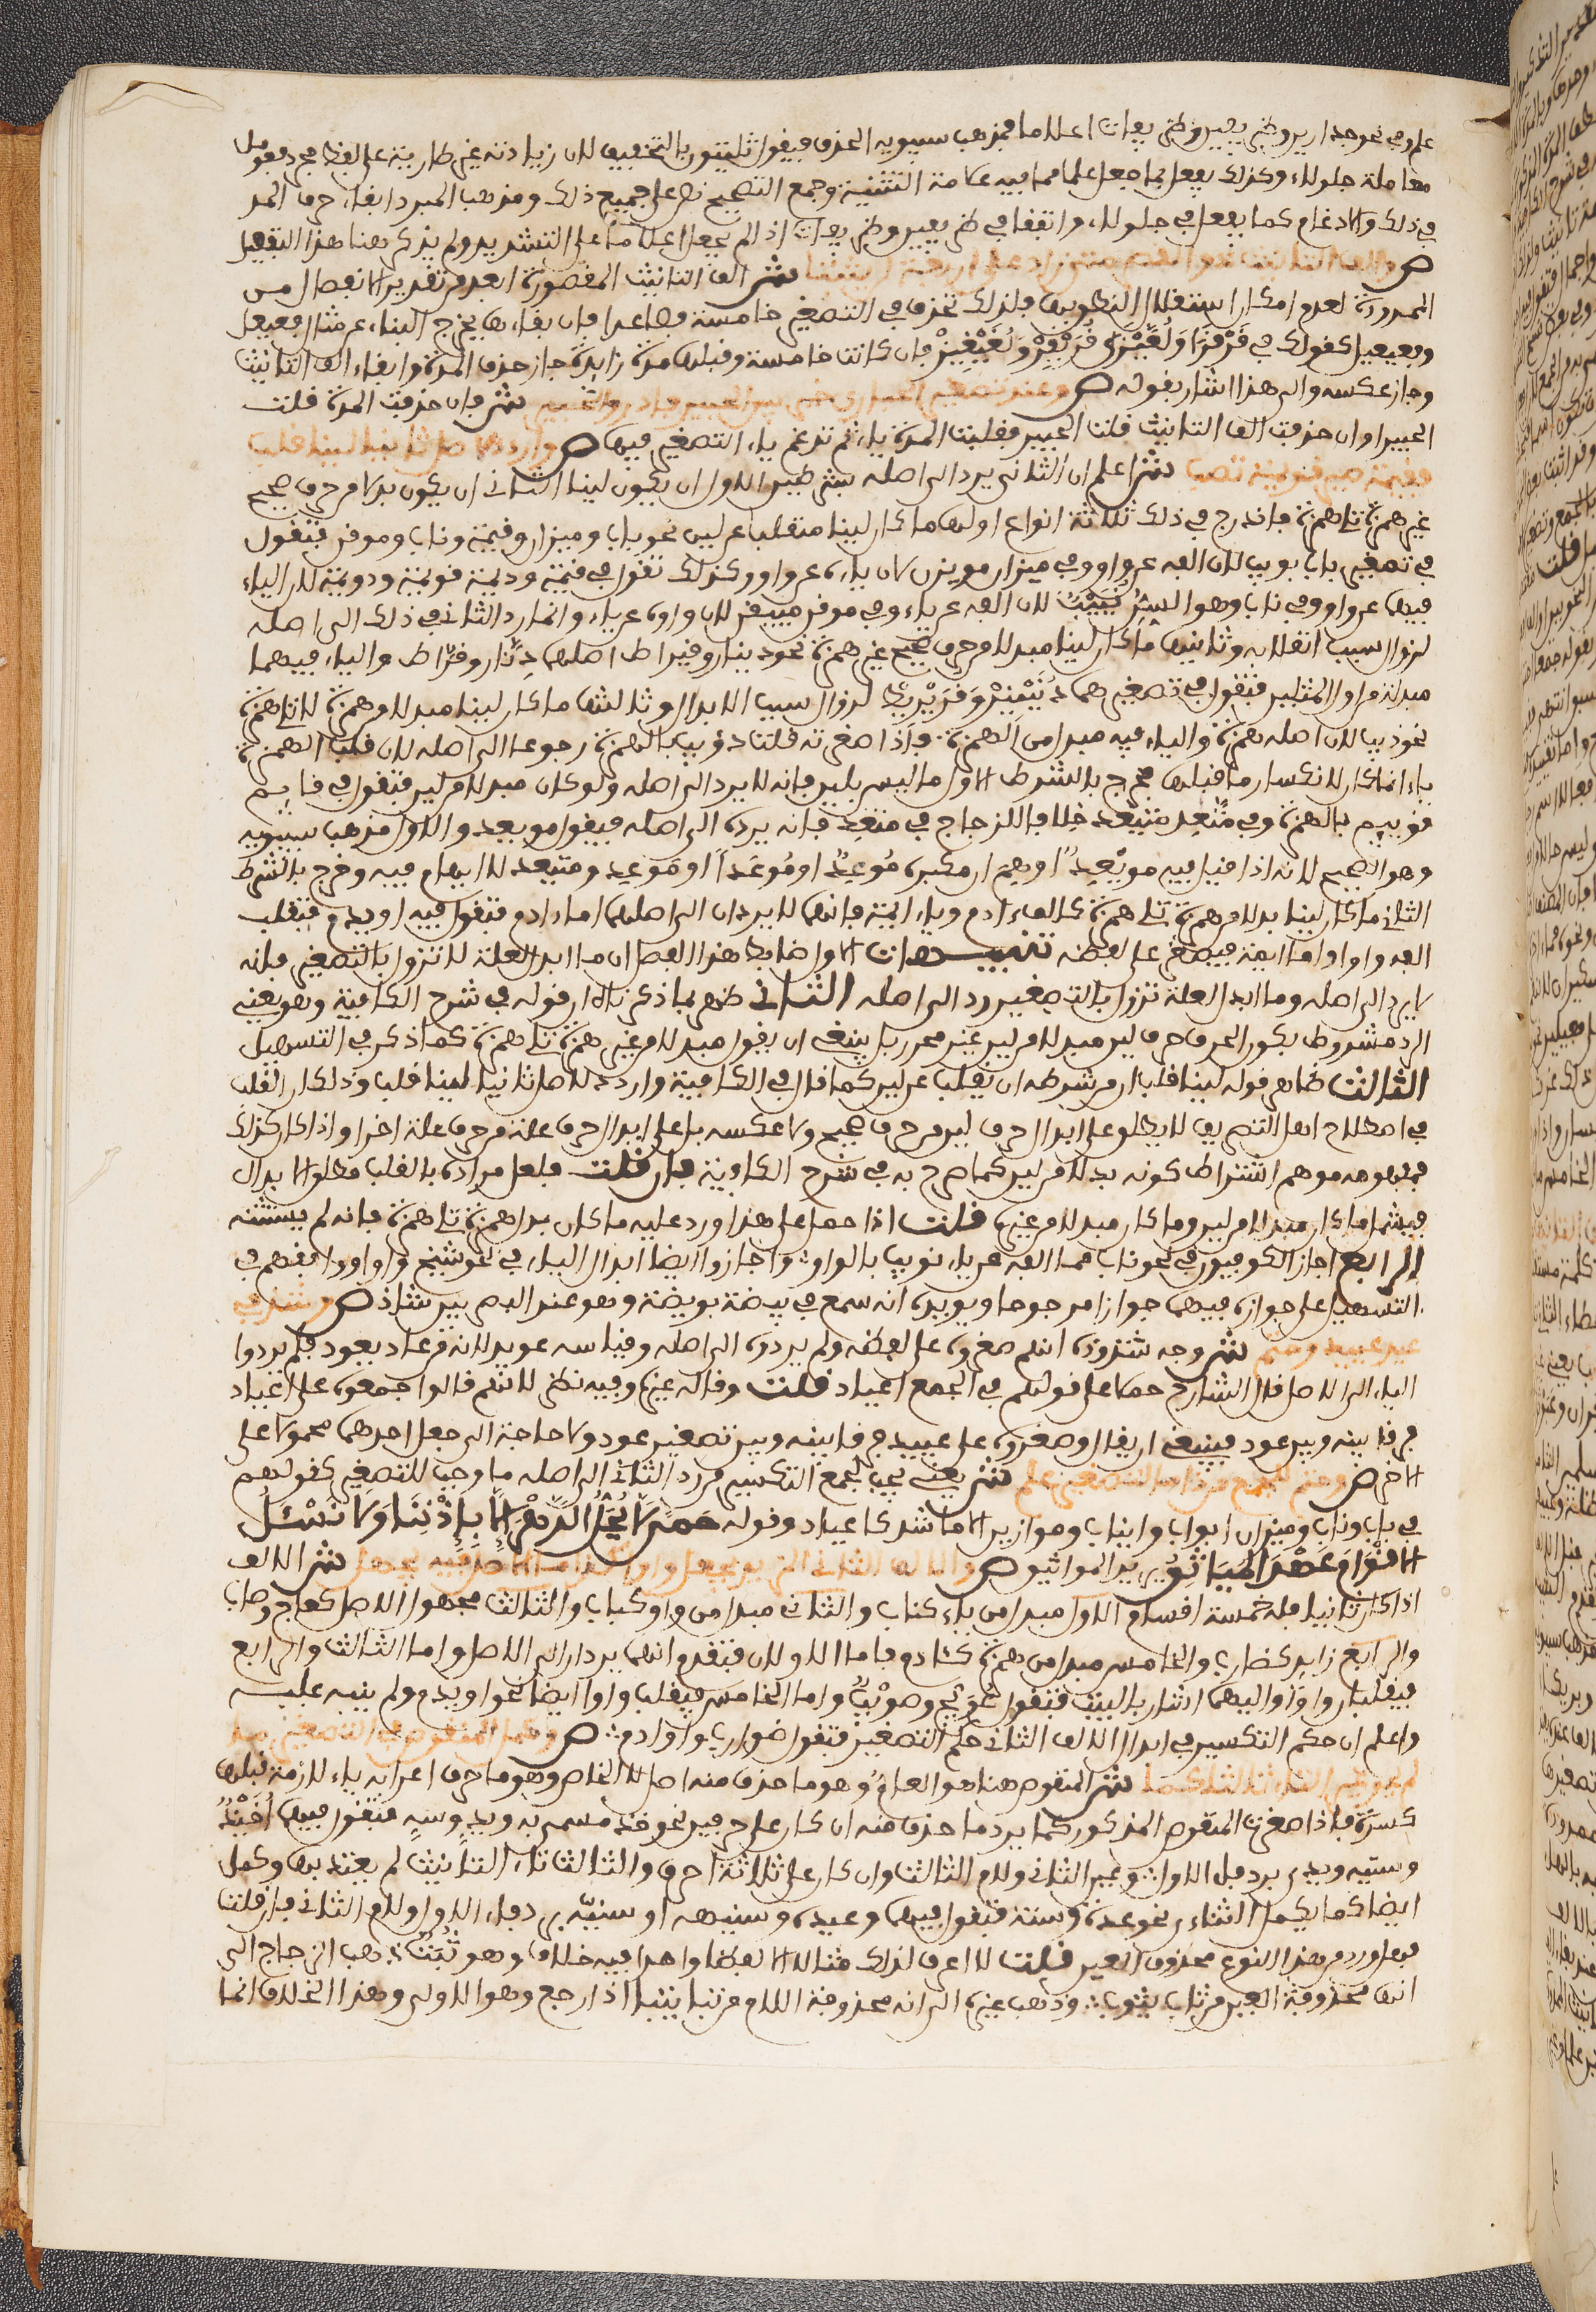 علم وفي نحو جدارين وظريفين وظريفات اعلاما فمذهب سيبويه الحذف فيقول ثليثون بالتخفيف لان زيادته غير طارية على لفظ مجرد فعومل
معاملة جلولاء وكذلك يفعل بما جعل علما مما فيه علامة التثنية وجمع التصحيح نص على جميع ذلك ومذهب المبرد ابقاء حرف المد
في ذلك والادغام كما يفعل في جلولاء واتفقا في ظريفين وظريفات اذا لم يجعل اعلاما على التشديد ولم يذكر هنا هذا التفصيل
ص والف التانيث ذو القصر متى زاد على اربعة لن يثبتا ش الف التانيث المقصورة ابعد من تقدير الانفصال من
الممدودة لعدم امكان استقلال النطق بها فلذلك تحذف في التصغير خامسة فصاعدا فان بقاءها يخرج البناء عن مثال فعيعل
وفعيعيل كقولك في قرقرا ولغيزى قريقر ولغيغيز فان كانت خامسة وقبلها مدة زايدة جاز حذف المدة وابقاء الف التانيث
وجاز عكسه والى هذا اشار بقوله ص وعند تصغير الحبارى خير بين الحبيرى فادر والحبير ش فان حذفت المدة قلت
الحبيرا وان حذفت الف التانيث قلت الحبير فقلبت المدة ياء ثم تدغم ياء التصغير فيها ص واردد لاصل ثانيا لينا قلب
فقيمة صير قويمة تصب ش اعلم ان الثاني يرد الى اصله بشرطين الاول ان يكون لينا الثاني ان يكون بدلا من حرف صحيح
غير همزة تلا همزة فاندرج في ذلك ثلاثة انواع اولها ما كان لينا منقلبا عن لين نحو باب وميزان وقيمة وناب وموقن فتقول
في تصغير باب بويب لان الفه عن واو وفي ميزان مويزين لان ياءه عن واو وكذلك تقول في قيمة وديمة قويمة ودويمة لان الياء
فيها عن واو وفي ناب وهو السن نييب لان الفه عن ياء وفي موقن مييقن لان واوه عن ياء وانما رد الثاني في ذلك الى اصله
لزوال سبب انقلابه وثانيها ما كان لينا مبدلا من حرف صحيح غير همزة نحو دينار وقيراط اصلهما دنار وقراط والياء فيهما
مبدلة من اول المثلين فتقول في تصغيرهما دنينير وقريريط لزوال سبب الابدال وثالثها ما كان لينا مبدلا من همزة لا تلا همزة
نحو ذيب لان اصله همزة والياء فيه مبدل من الهمزة فاذا صغرته قلت ذويب بالهمزة رجوعا الى اصله لان قلب الهمزة
ياء انما كان لانكسار ما قبلها فخرج بالشرط الاول ما ليس بلين فانه لا يرد الى اصله ولو كان مبدلا من لين فتقول في قايم
قويم بالهمزة وفي متعد متيعد خلافا للزجاج في متعد فانه يرده الى اصله فيقول مويعد والاول مذهب سيبويه
وهو الصحيح لانه اذا قيل فيه مويعد اوهم ان مكبره موعد او موعد او موعد ومتيعد لا ايهام فيه وخرج بالشرط
الثاني ما كان لينا بدلا من همزة تلا همزة كالف ءادم وياء ايمة فانهما لا يردان الى اصلهما اما ءادم فتقول فيه اويدم فتقلب
الفه واوا واما ايمة فيصغر على لفظه تنبيهات الاول ضابط هذا الفصل ان ما ابدل لعلة لا تزول بالتصغير فانه
لا يرد الى اصله وما ابدل لعلة تزول بالتصغير رد الى اصله الثاني ظهر بما ذكرناه ان قوله في شرح الكافية وهو يعني
الرد مشروط بكون الحرف حرف لين مبدلا من لين غير محرر بل ينبغي ان يقول مبدلا من غير همزة تلا همزة كما ذكر في التسهيل
الثالث ظاهر قوله لينا قلب ان من شرطه ان يقلب عن لين كما قال في الكافية واردد لاصل ثانيا لينا قلب وذلك ان القلب
في اصطلاح اهل التصريف لا يطلق على ابدال حرف لين من حرف صحيح ولا عكسه بل على ابدال حرف علة من حرف علة اخر واذا كان كذلك
فمفهومه موهم اشتراط كونه بدلا من لين كما صرح به في شرح الكافية فان قلت فلعل مراده بالقلب مطلق الابدال
فيشمل ما كان مبدلا من لين وما كان مبدلا من غيره قلت اذا حمل على هذا ورد عليه ما كان بدل همزة تلا همزة فانه لم يستثنه
الرابع اجاز الكوفيون في نحو ناب مما الفه عن ياء نويب بالواو واجازوا ايضا ابدال الياء في نحو شيخ واوا ووافقهم في
التسهيل على جوازه فيهما جوازا مرجوحا ويويده انه سمع في بيضة بويضة وهو عند البصريين شاذ ص وشذ في
عيد عييد وحتم ش وجه شذوذه انهم صغروه على لفظه ولم يردوه الى اصله وقياسه عويد لانه من عاد يعود فلم يردوا
الياء الى الاصل قال الشارح حملا على قولهم في الجمع اعياد قلت وقاله غيره وفيه نظر لانهم قالوا جمعوه على اعياد
فرقا بينه وبين عود فينبغي ان يقال وصغروه على عييد فرقا بينه وبين تصغير عود ولا حاجة الى جعل احدهما محمولا على
الاخر ص وحتم للجمع من ذا ما لتصغير علم ش يعني يجب لجمع التكسير من رد الثاني الى اصله ما وجب للتصغير كقولهم
في باب وناب وميزان ابواب وانياب وموازين الا ما شذ كاعياد وقوله حمى لا يحل الدهر الا باذننا ولا نسئل
الاقوام عهد المياثق يريد المواثيق ص والالف الثاني المزيد يجعل واوا كذا ما الاصل فيه يجهل ش الالف
اذا كان ثانيا فله خمسة اقسام الاول مبدل من ياء كناب والثاني مبدل من واو كباب والثالث مجهول الاصل كعاج وصاب
والرابع زايد كضارب والخامس مبدل من همزة كئادم فاما الاولان فتقدم انهما يردان الى الاصل واما الثالث والرابع
فيقلبان واوا واليهما اشار بالبيت فتقول عويج وصويب واما الخامس فيقلب واوا ايضا نحو اويدم ولم ينبه عليه
واعلم ان حكم التكسير في ابدال الالف الثاني حكم التصغير فتقول ضوارب واوادم ص وكمل المنقوص في التصغير ما
لم يحو غير التاء ثالثا كما ش المنقوص هنا هو العام وهو ما حذف منه اصل لا الخاص وهو ما حرف اعرابه ياء لازمة قبلها
كسرة فاذا صغرت المنقوص المذكور كمل برد ما حذف منه ان كان على حرفين نحو خذ مسمى به ويد وسه فتقول فيها اخيذ
وستيه ويدي برد فاء الاول وعين الثاني ولام الثالث وان كان على ثلاثة احرف والثالث تاء التانيث لم يعتد بها وكمل
ايضا كما يكمل الثناءي نحو عدة وسنة فتقول فيهما وعيدة وسنيهة او سنية برد فاء الاول ولام الثاني فان قلت
فهل ورد من هذا النوع محذوف العين قلت لا اعرف لذلك مثالا الا لفظا واحدا فيه خلاف وهو ثبة ذهب الزجاج الى
انها محذوفة العين من ثاب يثوب وذهب غيره الى انه محذوفة اللام من ثبا يثبو اذا رجع وهو الاولى وهذا الخلاف انما